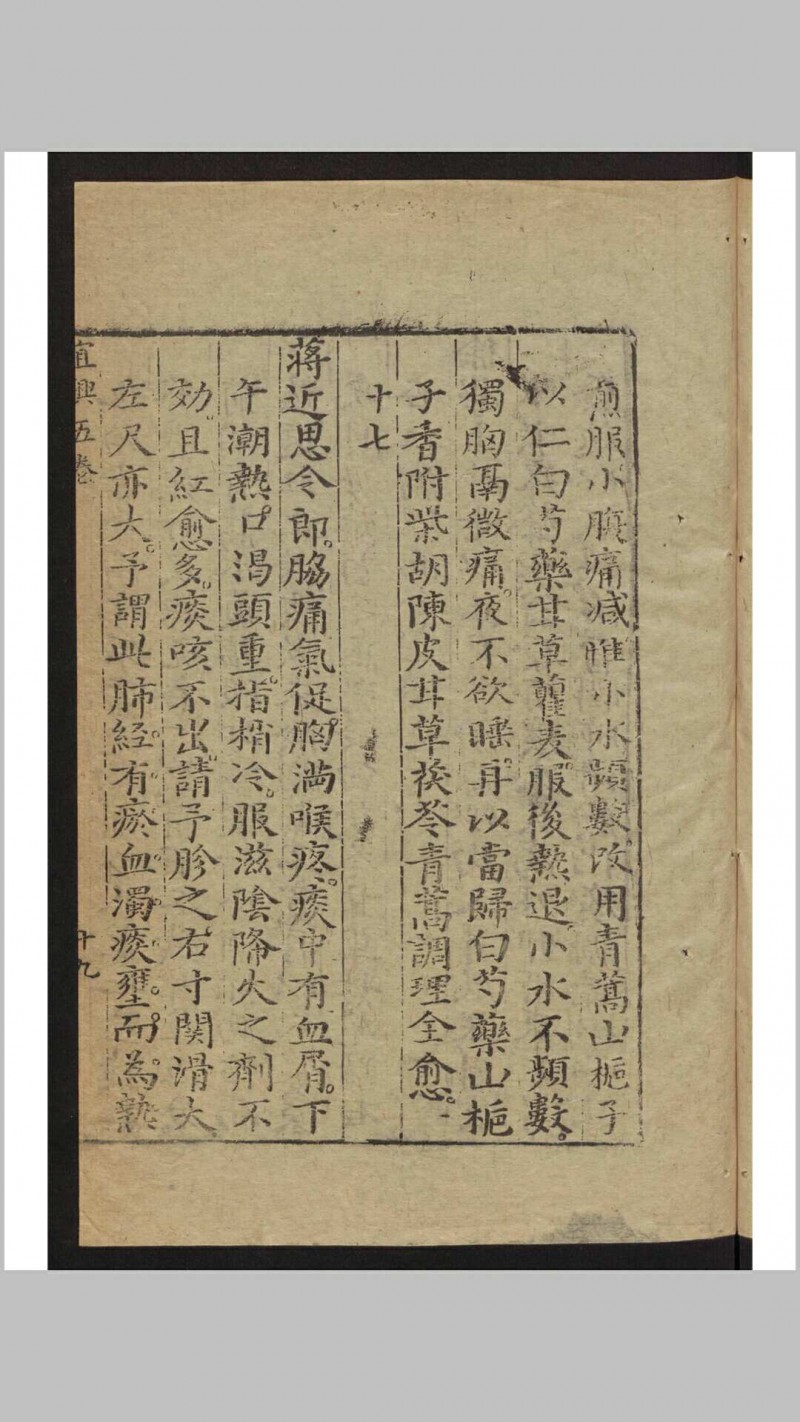 煎服小腹痛减惟小水頻數改用青蒿山梔子
以仁白芍藥甘草蘿麦服後熱退小水不頻數
獨胸鬲微痛夜不欲睡再以當歸白芍藥山梔
子香附柴胡陳皮甘草茯苓青蒿調理全愈
十七
蔣近思令郎脇痛氣促胸滿喉疼痰中有血屑下
午潮熱口渴頭重指梢冷服滋陰降火之劑不
効且紅愈多痰咳不出請予胗之右寸関滑大
左尺亦大予謂此肺經有瘀血濁痰壅而為熱
宜興五卷
十九